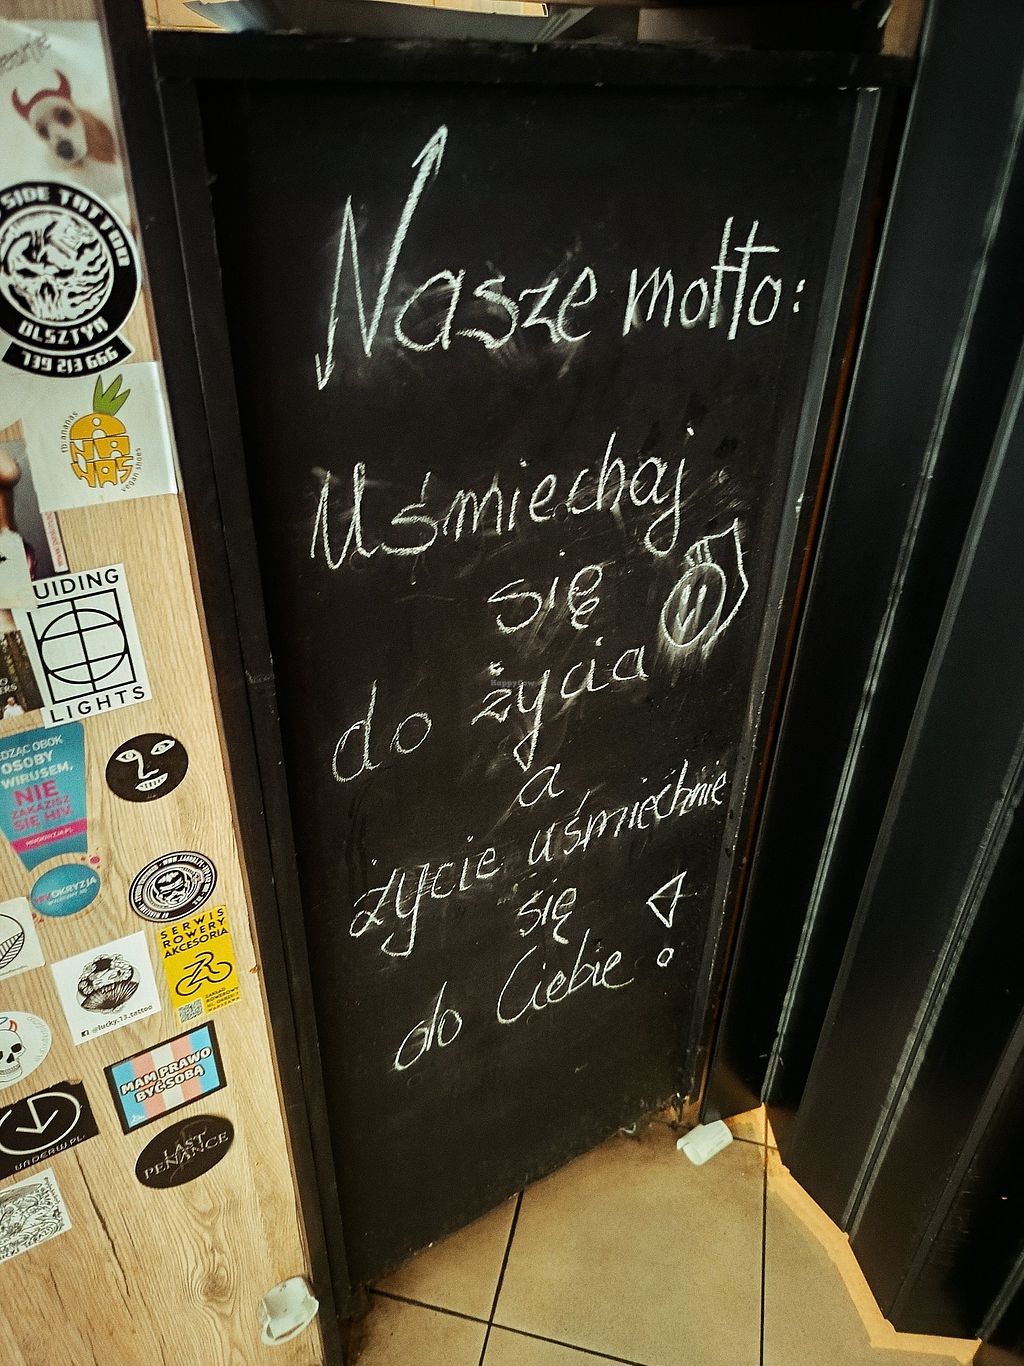 Nasze motto:
Uśmiechaj
się
do życia
a
życie uśmiechnie
się
do Ciebie!
SIDE TATTOO
OLSZTYN
739 213 666
fb: ananas
ANANAS
vegan shoes
UIDING
LIGHTS
OSOBY
WIRUSEM,
NIE
ZAKAZISZ
SIĘ HIV.
OKRYZJA
SERWIS
ROWERY
AKCESORIA
@lucky.13.tattoo
MAM PRAWO
BYĆ SOBĄ
UNDERW.PL
LAST
PENANCE
HappyCow